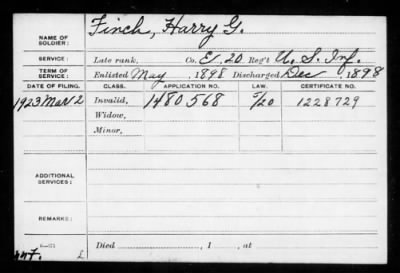 NAME OF SOLDIER: Finch, Harry G.
SERVICE: Late rank, Co. E, 20 Reg't U. S. Inf.
TERM OF SERVICE: Enlisted May, 1898 Discharged Dec, 1898
DATE OF FILING. CLASS. APPLICATION NO. LAW. CERTIFICATE NO.
1923 Mar 2 Invalid, 1480568 1228729
Widow,
Minor,
ADDITIONAL SERVICES:
REMARKS:
Died , 1 , at